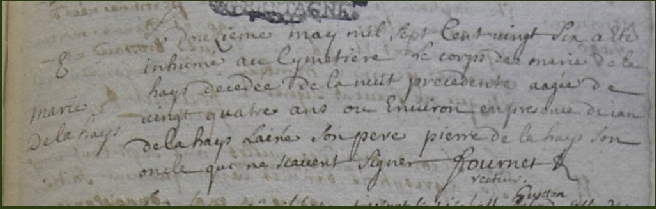 BRETAGNE.
Le Douzieme may mil sept Cent vingt six a ete
E
inhumé au Cymetiere le corps de marie de la
hays décedée de la nuit precedente aagée de
marie
vingt quatre ans ou Environ enpresence de ian
De la hays
de la hays Lainé Son pere pierre de la hays Son
oncle qui ne scavent Signer Fournet
recteur.